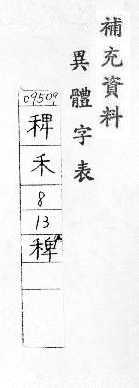 補充資料
異體字表
09509
稗
禾
8
13
稗